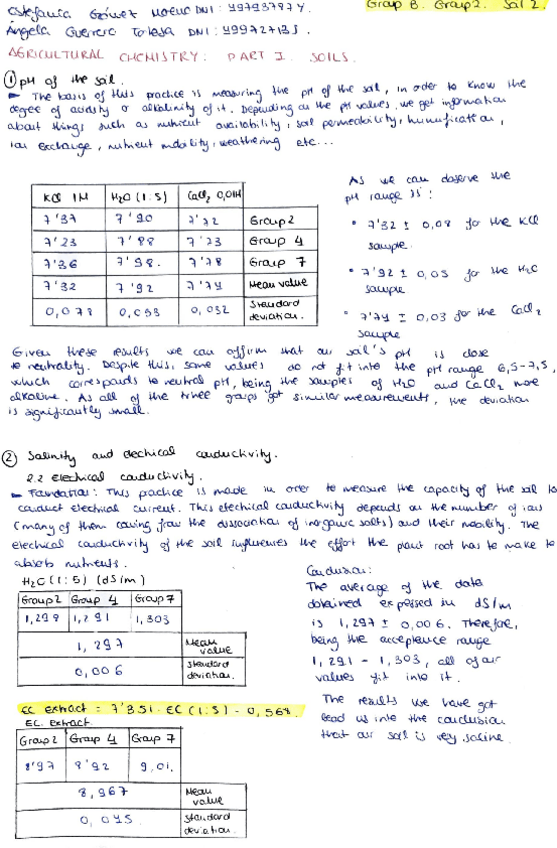 Estefanía Gómez Moreno DNI:
Group B. Group 2. Soil 2.
Ángela Guerrero Tolosa DNI:
AGRICULTURAL CHEMISTRY: PART I. SOILS.
① pH of the soil.
The basis of this practice is measuring the pH of the soil, in order to know the
degree of acidity or alkalinity of it. Depending on the pH values, we get information
about things such as nutrient availability, soil permeability, humification,
ion exchange, nutrient mobility, weathering etc...
KCl 1M H₂O (1:5) CaCl₂ 0,01M
7'37 7'90 7'72 Group 2
7'23 7'88 7'73 Group 4
7'36 7'98. 7'78 Group 7
7'32 7'92 7'74 Mean value
0,078 0,053 0,032 Standard deviation.
As we can observe the
pH range is:
• 7'32 ± 0,08 for the KCl
sample.
• 7'92 ± 0,05 for the H₂O
sample
• 7'74 ± 0,03 for the CaCl₂
sample
Given these results we can affirm that our soil's pH is close
to neutrality. Despite this, some values do not fit into the pH range 6,5-7,5,
which corresponds to neutral pH, being the samples of H₂O and CaCl₂ more
alkaline. As all of the three groups got similar measurements, the deviation
is significantly small.
② Salinity and electrical conductivity.
2.2 Electrical conductivity.
Foundation: This practice is made in order to measure the capacity of the soil to
conduct electrical current. This electrical conductivity depends on the number of ions
(many of them coming from the dissociation of inorganic salts) and their mobility. The
electrical conductivity of the soil influences the effort the plant root has to make to
absorb nutrients.
H₂O (1:5) (dS/m)
Group 2 Group 4 Group 7
1,298 1,291 1,303
1,297 Mean value
0,006 Standard deviation.
Conclusion:
The average of the data
obtained expressed in dS/m
is 1,297 ± 0,006. Therefore,
being the acceptance range
1,291 - 1,303, all of our
values fit into it.
The results we have got
lead us into the conclusion
that our soil is very saline.
EC extract = 7'351 · EC (1:5) - 0,568.
EC. Extract.
Group 2 Group 4 Group 7
8'97 8'92 9,01.
8,967 Mean value
0,045 Standard deviation.